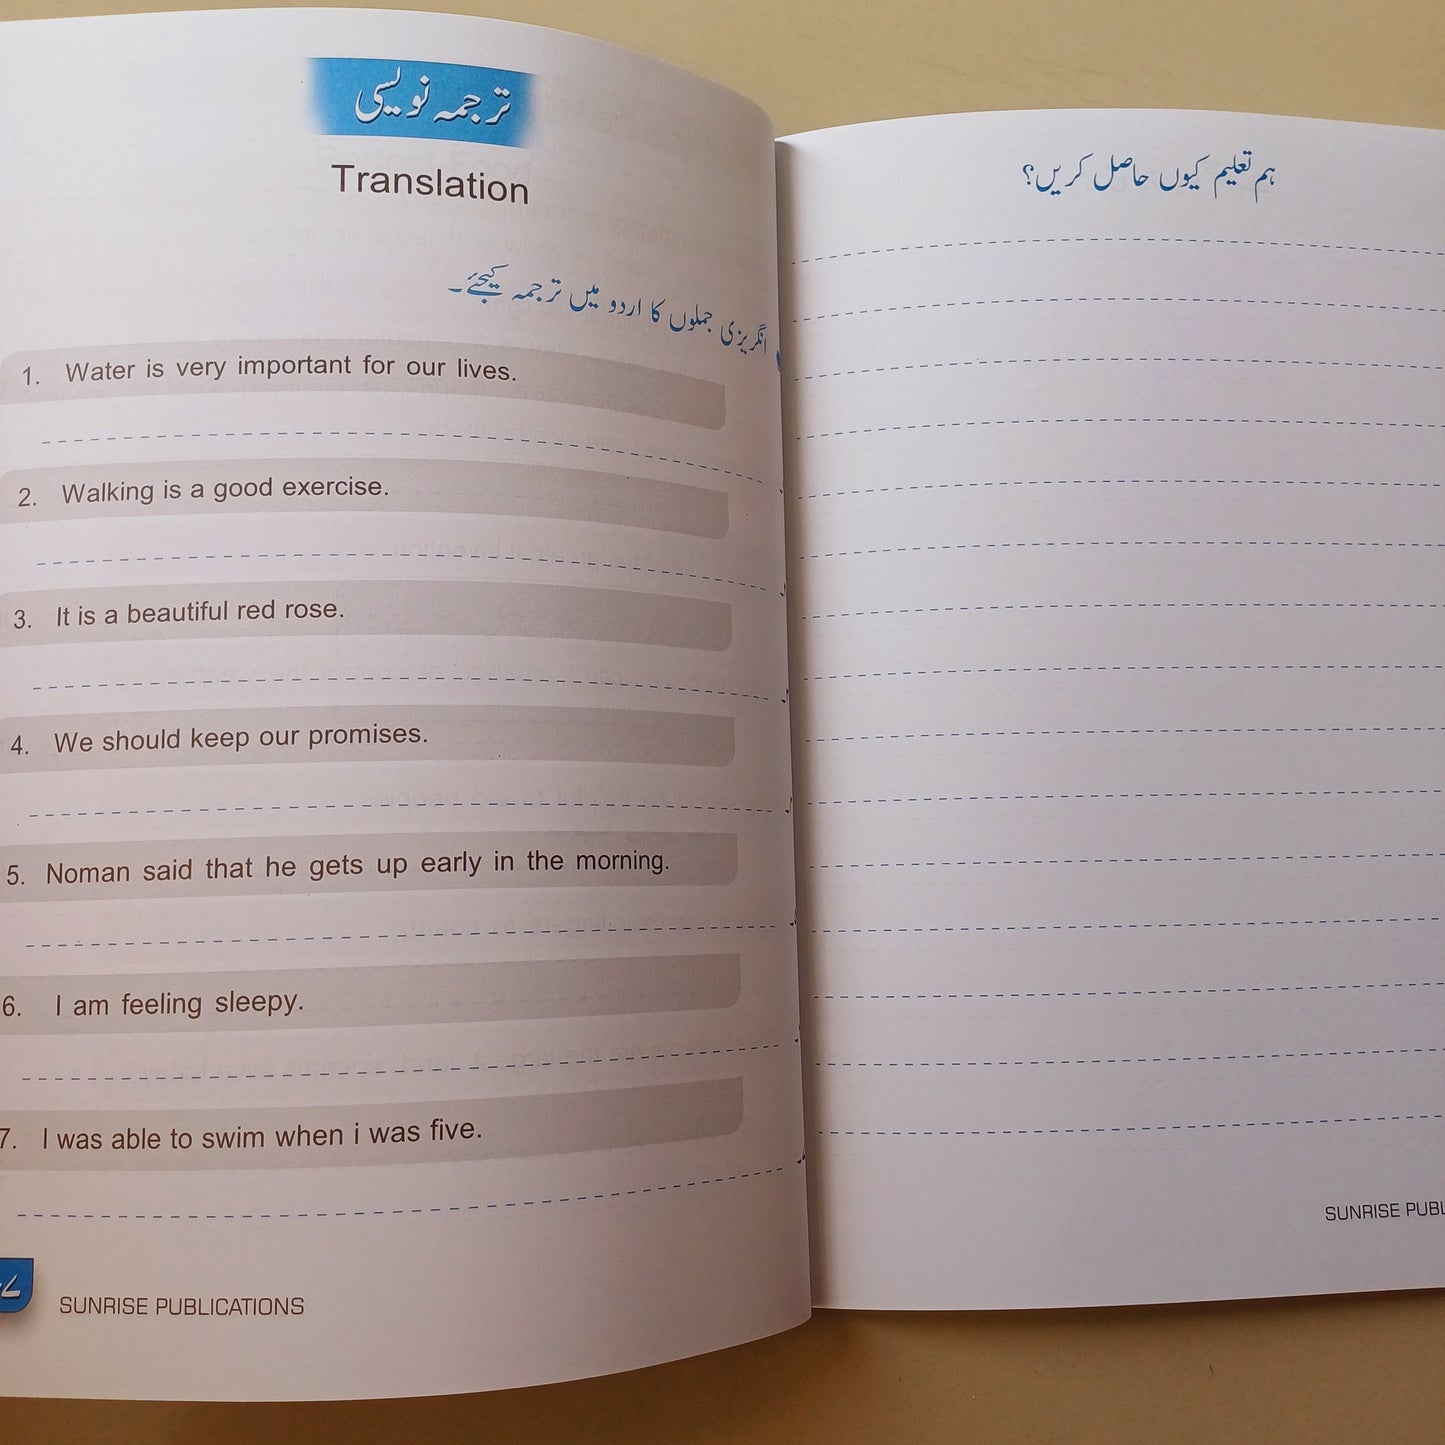 ترجمہ نویسی
Translation
انگریزی جملوں کا اردو میں ترجمہ کیجئے۔
1. Water is very important for our lives.
2. Walking is a good exercise.
3. It is a beautiful red rose.
4. We should keep our promises.
5. Noman said that he gets up early in the morning.
6. I am feeling sleepy.
7. I was able to swim when i was five.
SUNRISE PUBLICATIONS
ہم تعلیم کیوں حاصل کریں؟
SUNRISE